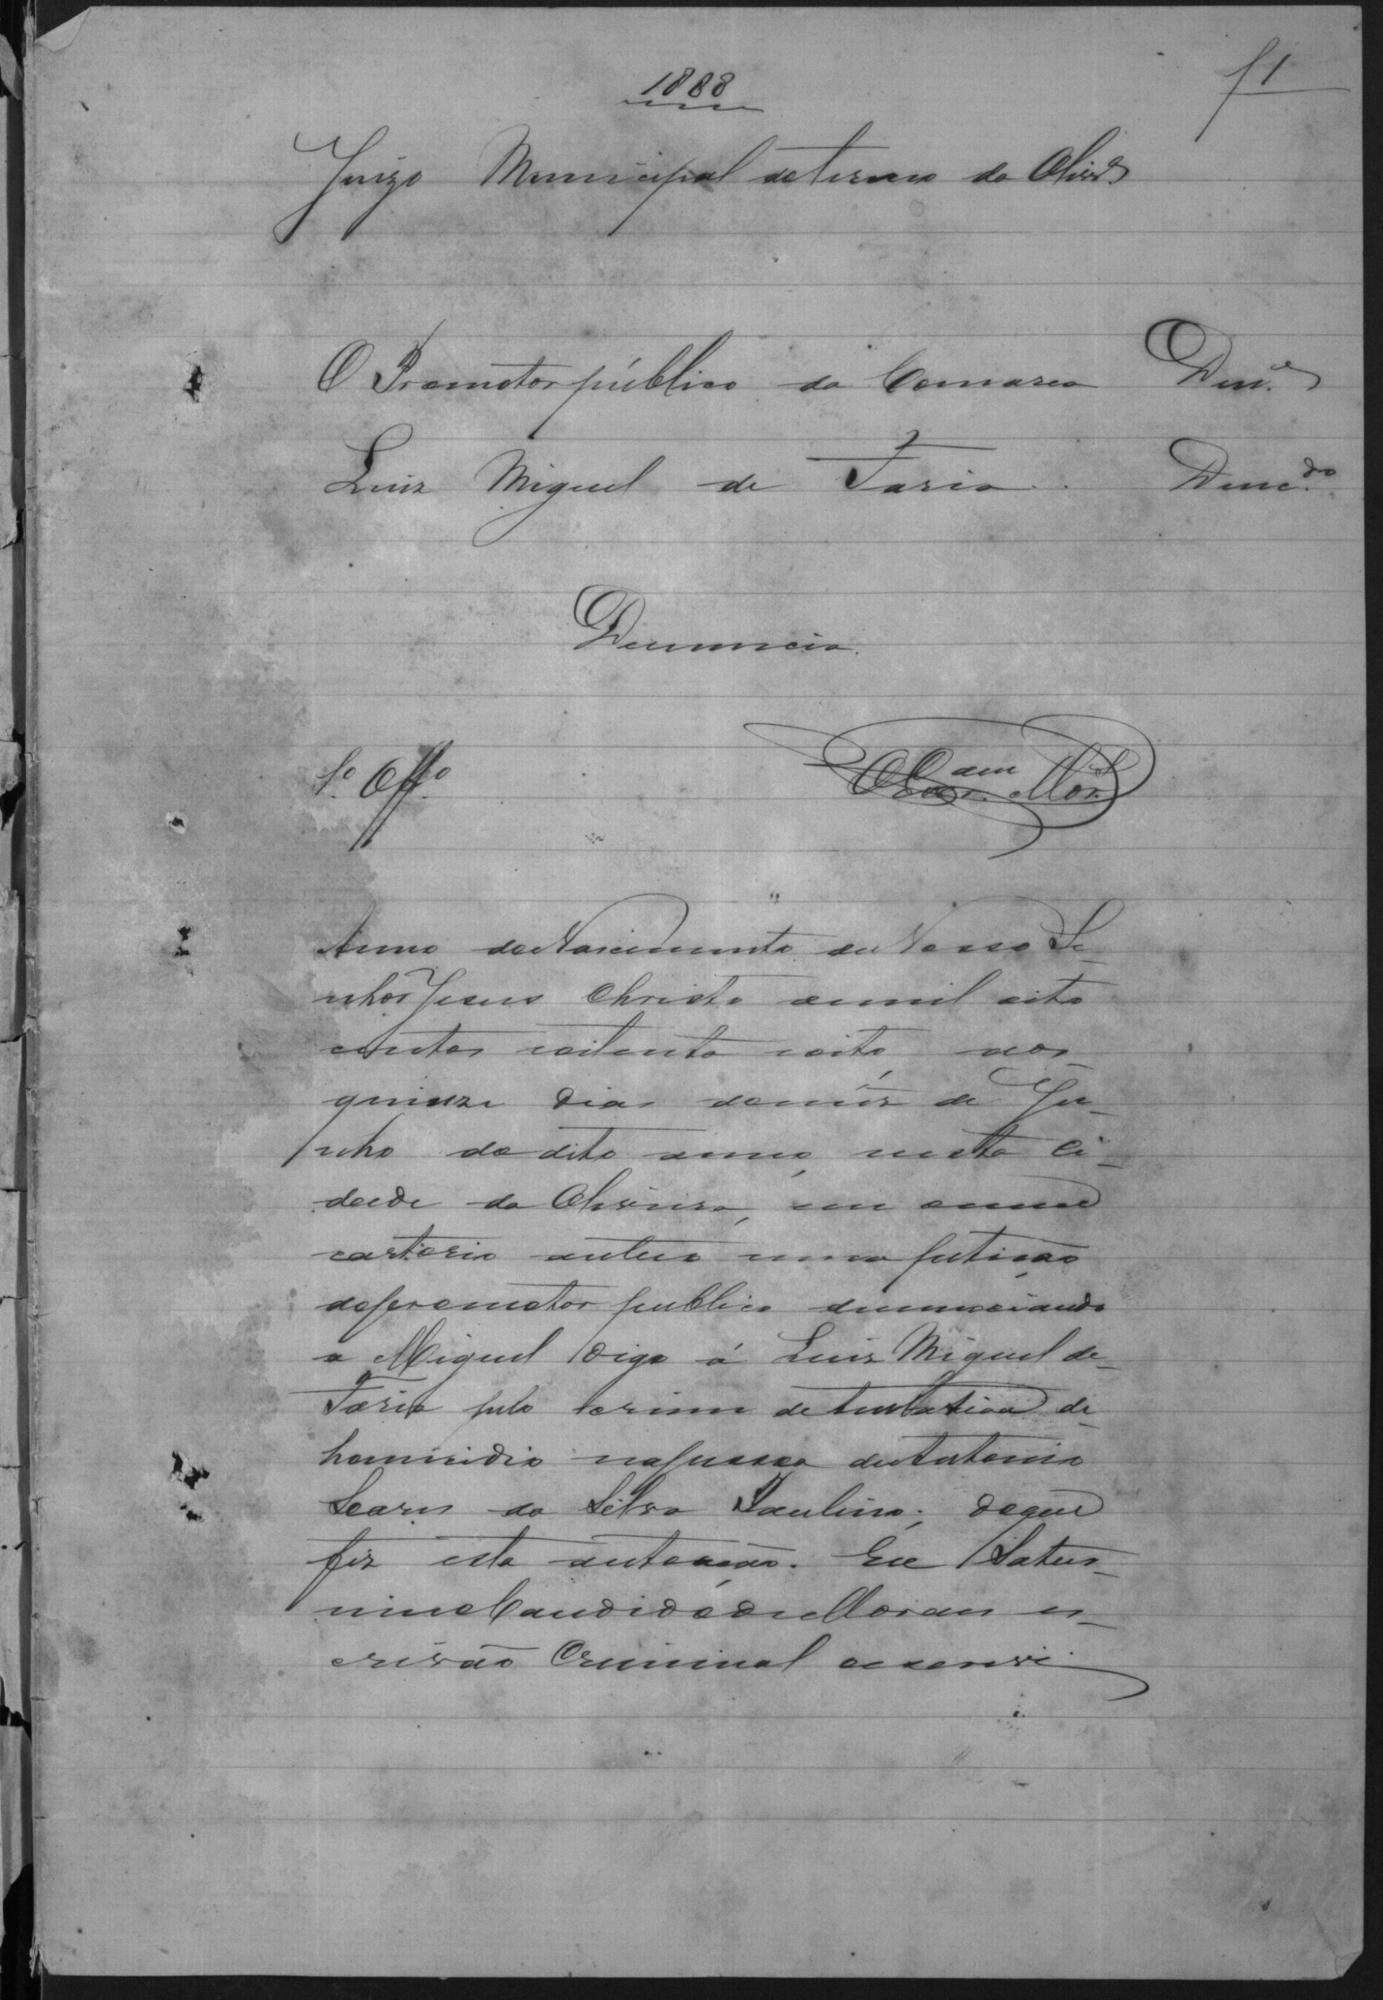 1888
f 1
Juizo Municipal do termo da Olivr.ª
O Promotor público da Comarca Den.e
Luiz Miguel de Faria. Denc.do
Denuncia.
1.º Off.º
Escr.am Mor.s
Anno do Nascimento de Nosso Se-
nhor Jesus Christo de mil oito
centos e oitenta e oito, aos
quinze dias do mês de Ju-
nho do dito anno, nesta Ci-
dade da Oliveira, em o meu
cartorio autuo uma petição
do promotor publico denunciando
a Miguel digo á Luiz Miguel de
Faria pelo crime de tentativa de
homicidio na pessoa de Antonio
da Silva Paulino; do que
fiz esta autoação. Eu Satur-
nino Candido de Moraes es-
crivão Criminal o escrevi.